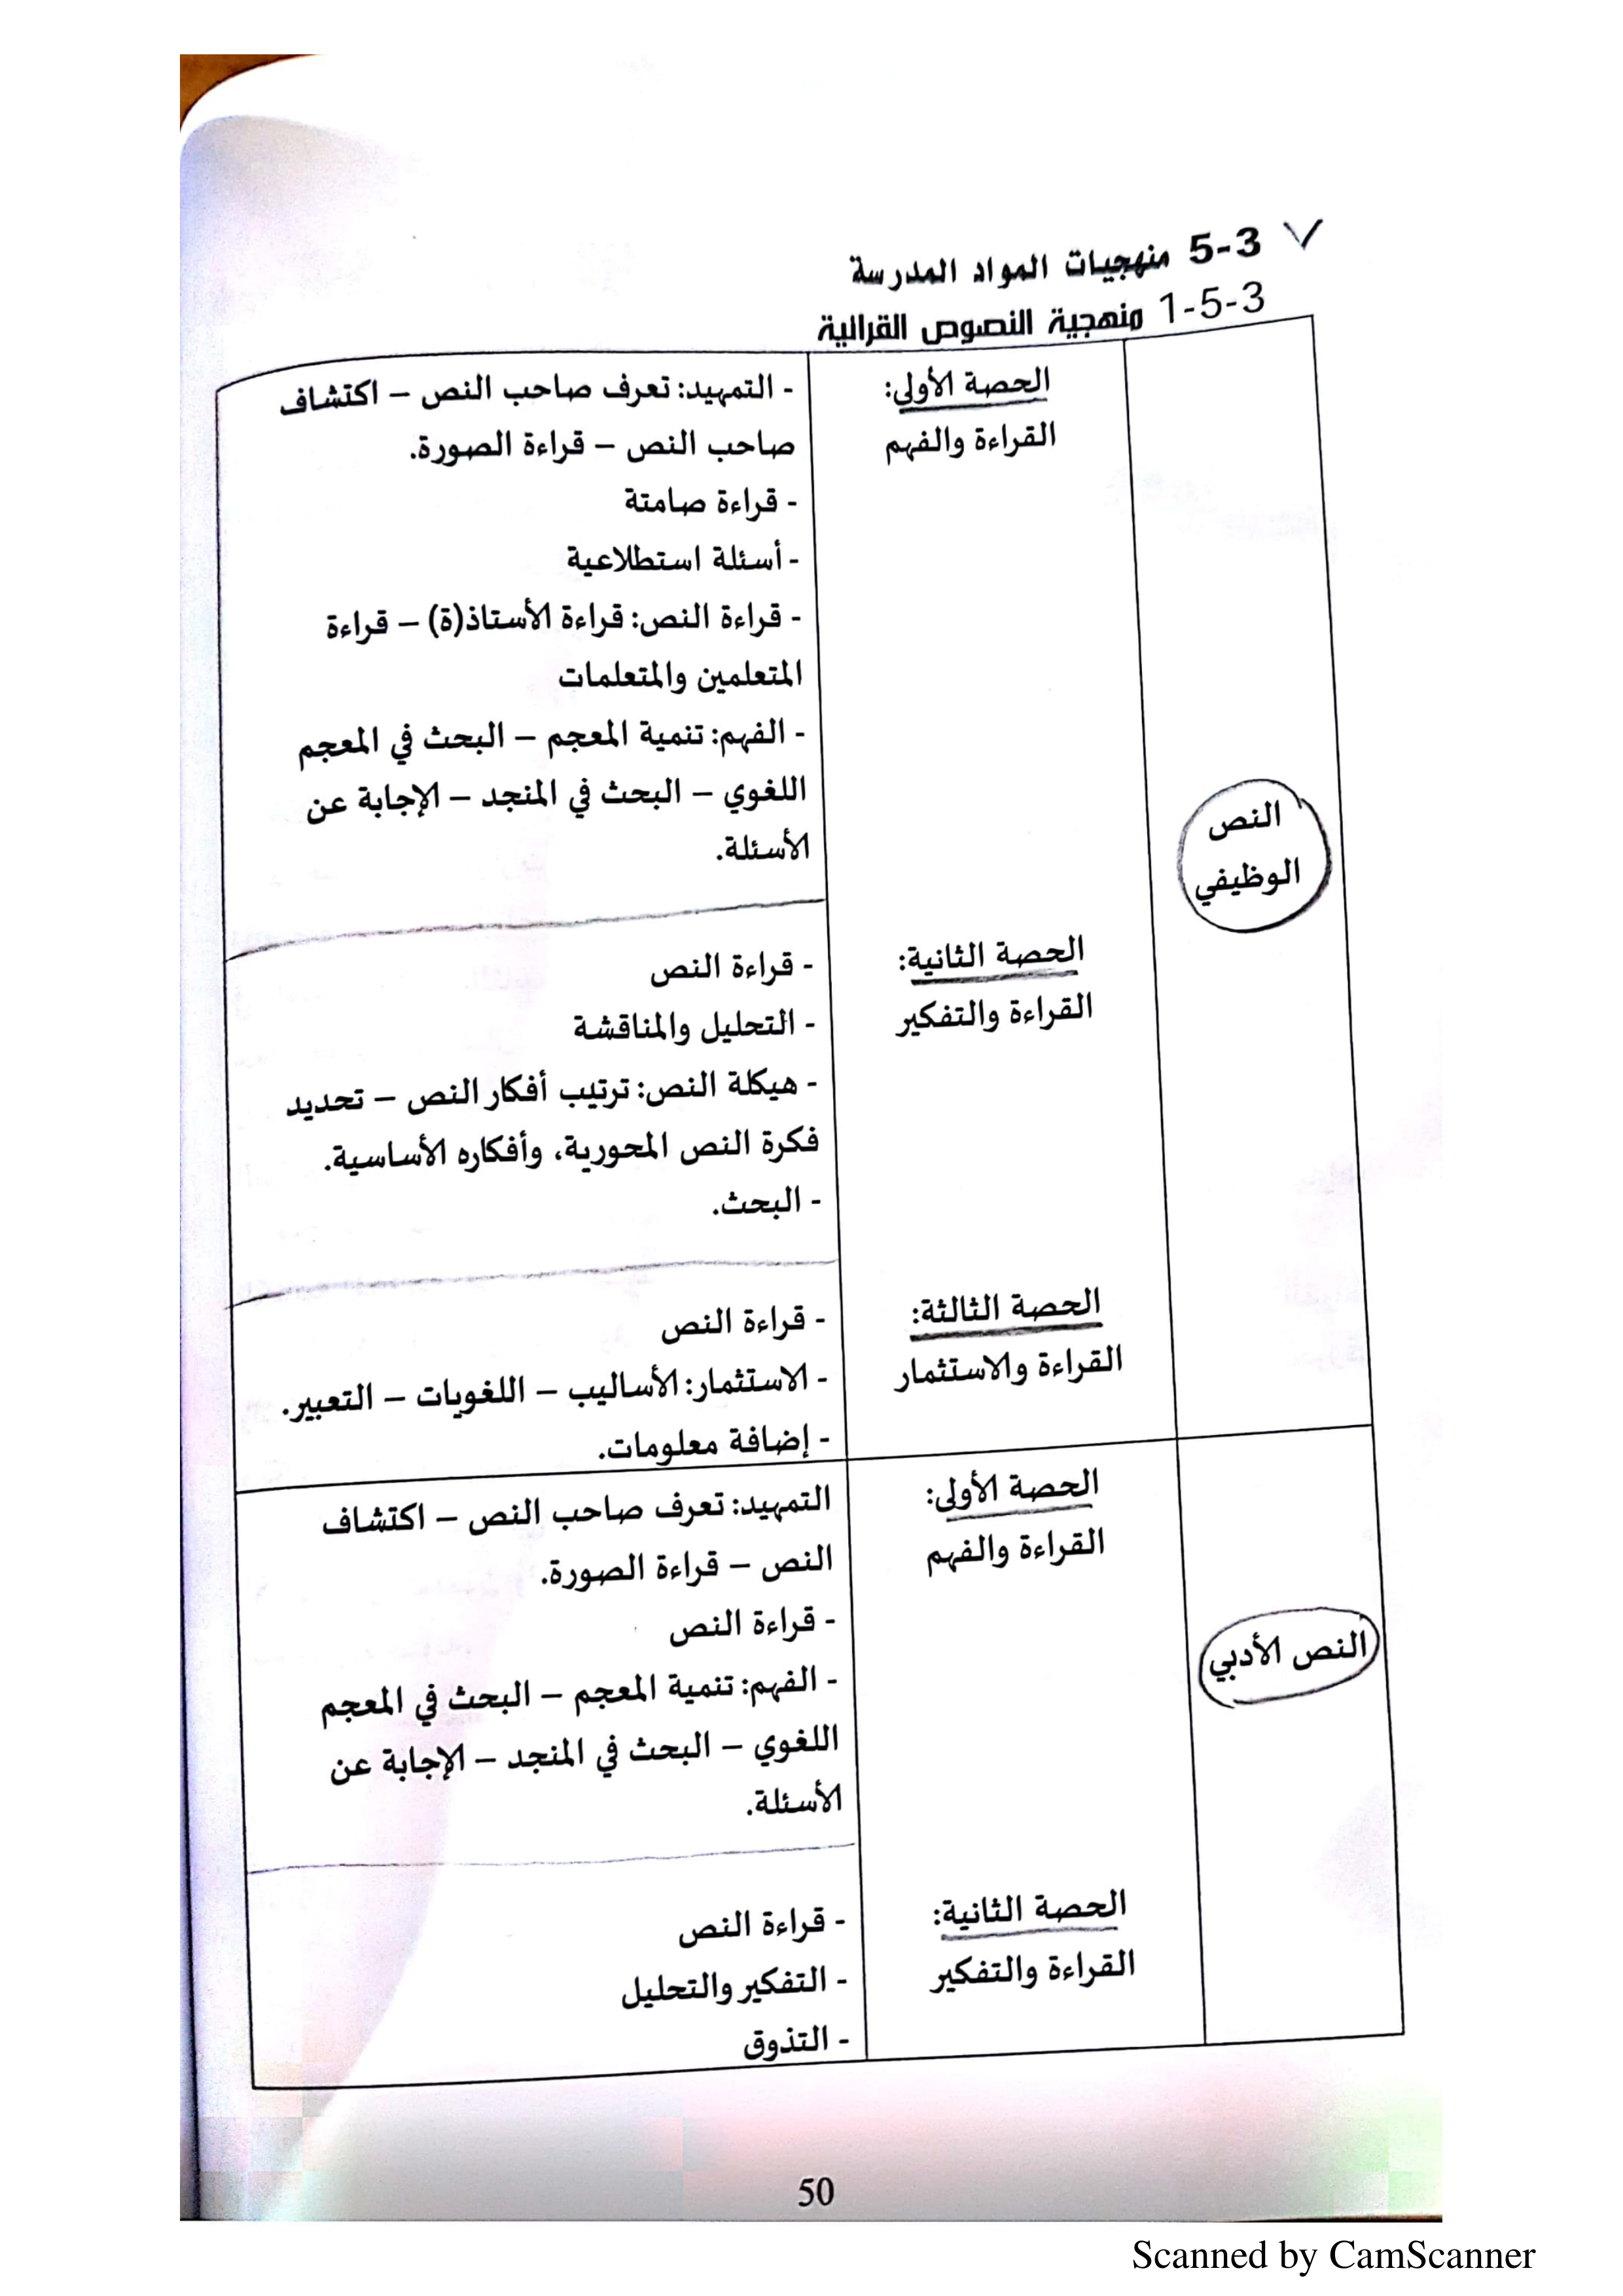 3-5 منهجيات المواد المدرسة
3-5-1 منهجية النصوص القرائية
النص
الوظيفي
الحصة الأولى:
القراءة والفهم
- التمهيد: تعرف صاحب النص – اكتشاف
صاحب النص – قراءة الصورة.
- قراءة صامتة
- أسئلة استطلاعية
- قراءة النص: قراءة الأستاذ(ة) – قراءة
المتعلمين والمتعلمات
- الفهم: تنمية المعجم – البحث في المعجم
اللغوي – البحث في المنجد – الإجابة عن
الأسئلة.
الحصة الثانية:
القراءة والتفكير
- قراءة النص
- التحليل والمناقشة
- هيكلة النص: ترتيب أفكار النص – تحديد
فكرة النص المحورية، وأفكاره الأساسية.
- البحث.
الحصة الثالثة:
القراءة والاستثمار
- قراءة النص
- الاستثمار: الأساليب – اللغويات – التعبير.
- إضافة معلومات.
النص الأدبي
الحصة الأولى:
القراءة والفهم
التمهيد: تعرف صاحب النص – اكتشاف
النص – قراءة الصورة.
- قراءة النص
- الفهم: تنمية المعجم – البحث في المعجم
اللغوي – البحث في المنجد – الإجابة عن
الأسئلة.
الحصة الثانية:
القراءة والتفكير
- قراءة النص
- التفكير والتحليل
- التذوق
50
Scanned by CamScanner